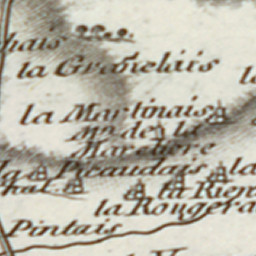 hais
la Granelais
la Martinais
Mⁿ de la
Marchere
la Picaudais la
la Rien
la Rougera
Pintais